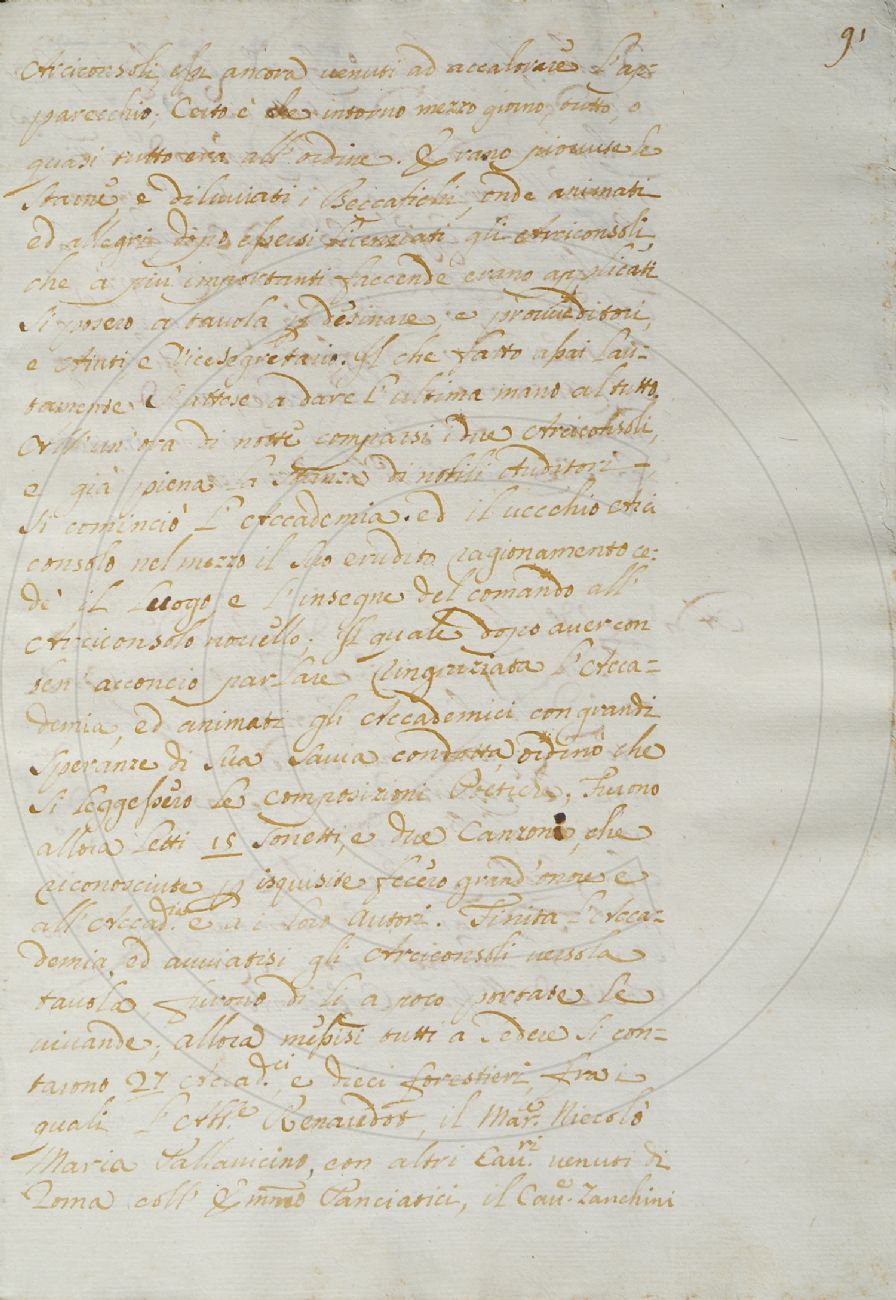 91
Arciconsoli essi ancora venuti ad accalorare l'ap-
parecchio; Certo è che intorno mezzo giorno, tutto, o
quasi tutto era all'ordine. Erano piovute le
starne e diluviati i Beccafichi, onde animati
ed allegri dopo essersi licenziati gli Arciconsoli
che a più importanti faccende erano applicati
si posero a tavola p desinare, e provveditori,
e Aiuti e Vicesegretario. Il che fatto assai lau-
tamente s'attese a dare l'ultima mano al tutto.
All'un'ora di notte comparsi i due Arciconsoli,
e già piena la stanza di nobili Auditori -,
si cominciò l'Accademia. ed il vecchio Arci
consolo nel mezzo il suo erudito ragionamento ce-
dè il Luogo, e l'insegne del comando all'
Arciconsolo novello; Il quale dopo aver con
ben' acconcio parlare ringraziata l'Acca-
demia, ed animati gli Accademici con grandi
speranze di sua savia condotta, ordinò che
si leggessero le composizioni Poetiche, Furono
allora letti 15 sonetti, e due Canzoni, che
riconosciute p isquisite fecero grand'onore e
all'Accad.ia e a i loro Autori. Finita l'Acca-
demia, ed avviatisi gli Arciconsoli verso la
tavola, furono di lì a poco portate le
vivande; allora messisi tutti a sedere si con-
tarono 27 Accad.ci, e dieci forestieri, fra i
quali l'Ab.e Renaudot, il Mar.e Niccolò
Maria Pallavicino, con altri Cav.ri venuti di
Roma coll'Emmo Panciatici, il Cav.e Zanchini